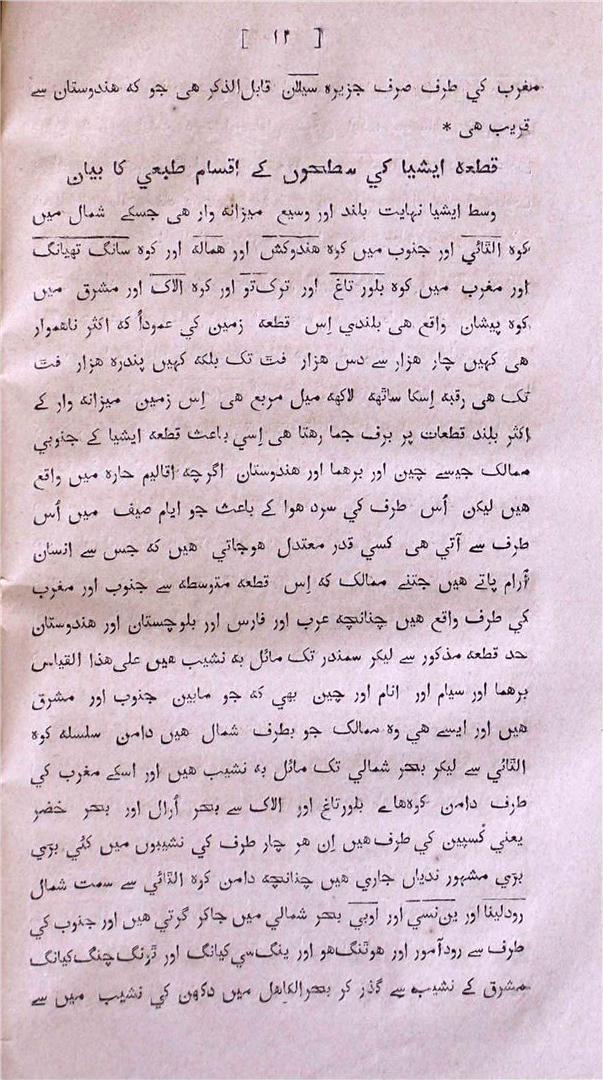 [ ۱۲ ]
مغرب کي طرف صرف جزیرہ سیلان قابل الذکر هی جو که هندوستان سے
قریب هی *
قطعه ایشیا کي سطحوں کے اقسام طبعي کا بیان
وسط ایشیا نہایت بلند اور وسیع میزانه وار هی جسکے شمال میں
کوہ الٹائي اور جنوب میں کوہ هندوکش اور هماله اور کوہ سانگ تھیانگ
اور مغرب میں کوہ بلورتاغ اور ترک تو اور کوہ الاک اور مشرق میں
کوہ پیشان واقع هی بلندي اِس قطعه زمین کي عموداً که اکثر ناهموار
هی کہیں چار هزار سے دس هزار فٹ تک بلکه کہیں پندرہ هزار فٹ
تک هی رقبه اِسکا ساٹھه لاکھه میل مربع هی اِس زمین میزانه وار کے
اکثر بلند قطعات پر برف جما رهتا هی اِسي باعث قطعه ایشیا کے جنوبي
ممالک جیسے چین اور برهما اور هندوستان اگرچه اقالیم حارہ میں واقع
هیں لیکن اُس طرف کي سرد هوا کے باعث جو ایام صیف میں اُس
طرف سے آتي هی کسي قدر معتدل هوجاتي هیں که جس سے انسان
آرام پاتے هیں جتنے ممالک که اِس قطعه متوسطه سے جنوب اور مغرب
کي طرف واقع هیں چنانچه عرب اور فارس اور بلوچستان اور هندوستان
حد قطعه مذکور سے لیکر سمندر تک مائل به نشیب هیں علی هذا القیاس
برهما اور سیام اور انام اور چین بھي که جو مابین جنوب اور مشرق
هیں اور ایسے هي وہ ممالک جو بطرف شمال هیں دامن سلسله کوہ
الٹائي سے لیکر بحر شمالي تک مائل به نشیب هیں اور اسکے مغرب کي
طرف دامن کوہ‌هاے بلورتاغ اور الاک سے بحر اُرال اور بحر خضر
یعني کُسپین کي طرف هیں اِن هر چار طرف کي نشیبوں میں کئي بڑي
بڑي مشہور ندیاں جاري هیں چنانچه دامن کوہ الٹائي سے سمت شمال
رودلینا اور ین‌نسي اور اوبي بحر شمالي میں جاکر گرتي هیں اور جنوب کي
طرف سے رودآمور اور هوٹنگ‌هو اور ینگ‌سي‌کیانگ اور چنگ‌کیانگ
مشرق کے نشیب سے گذر کر بحرالکاهل میں دکھن کي نشیب میں سے